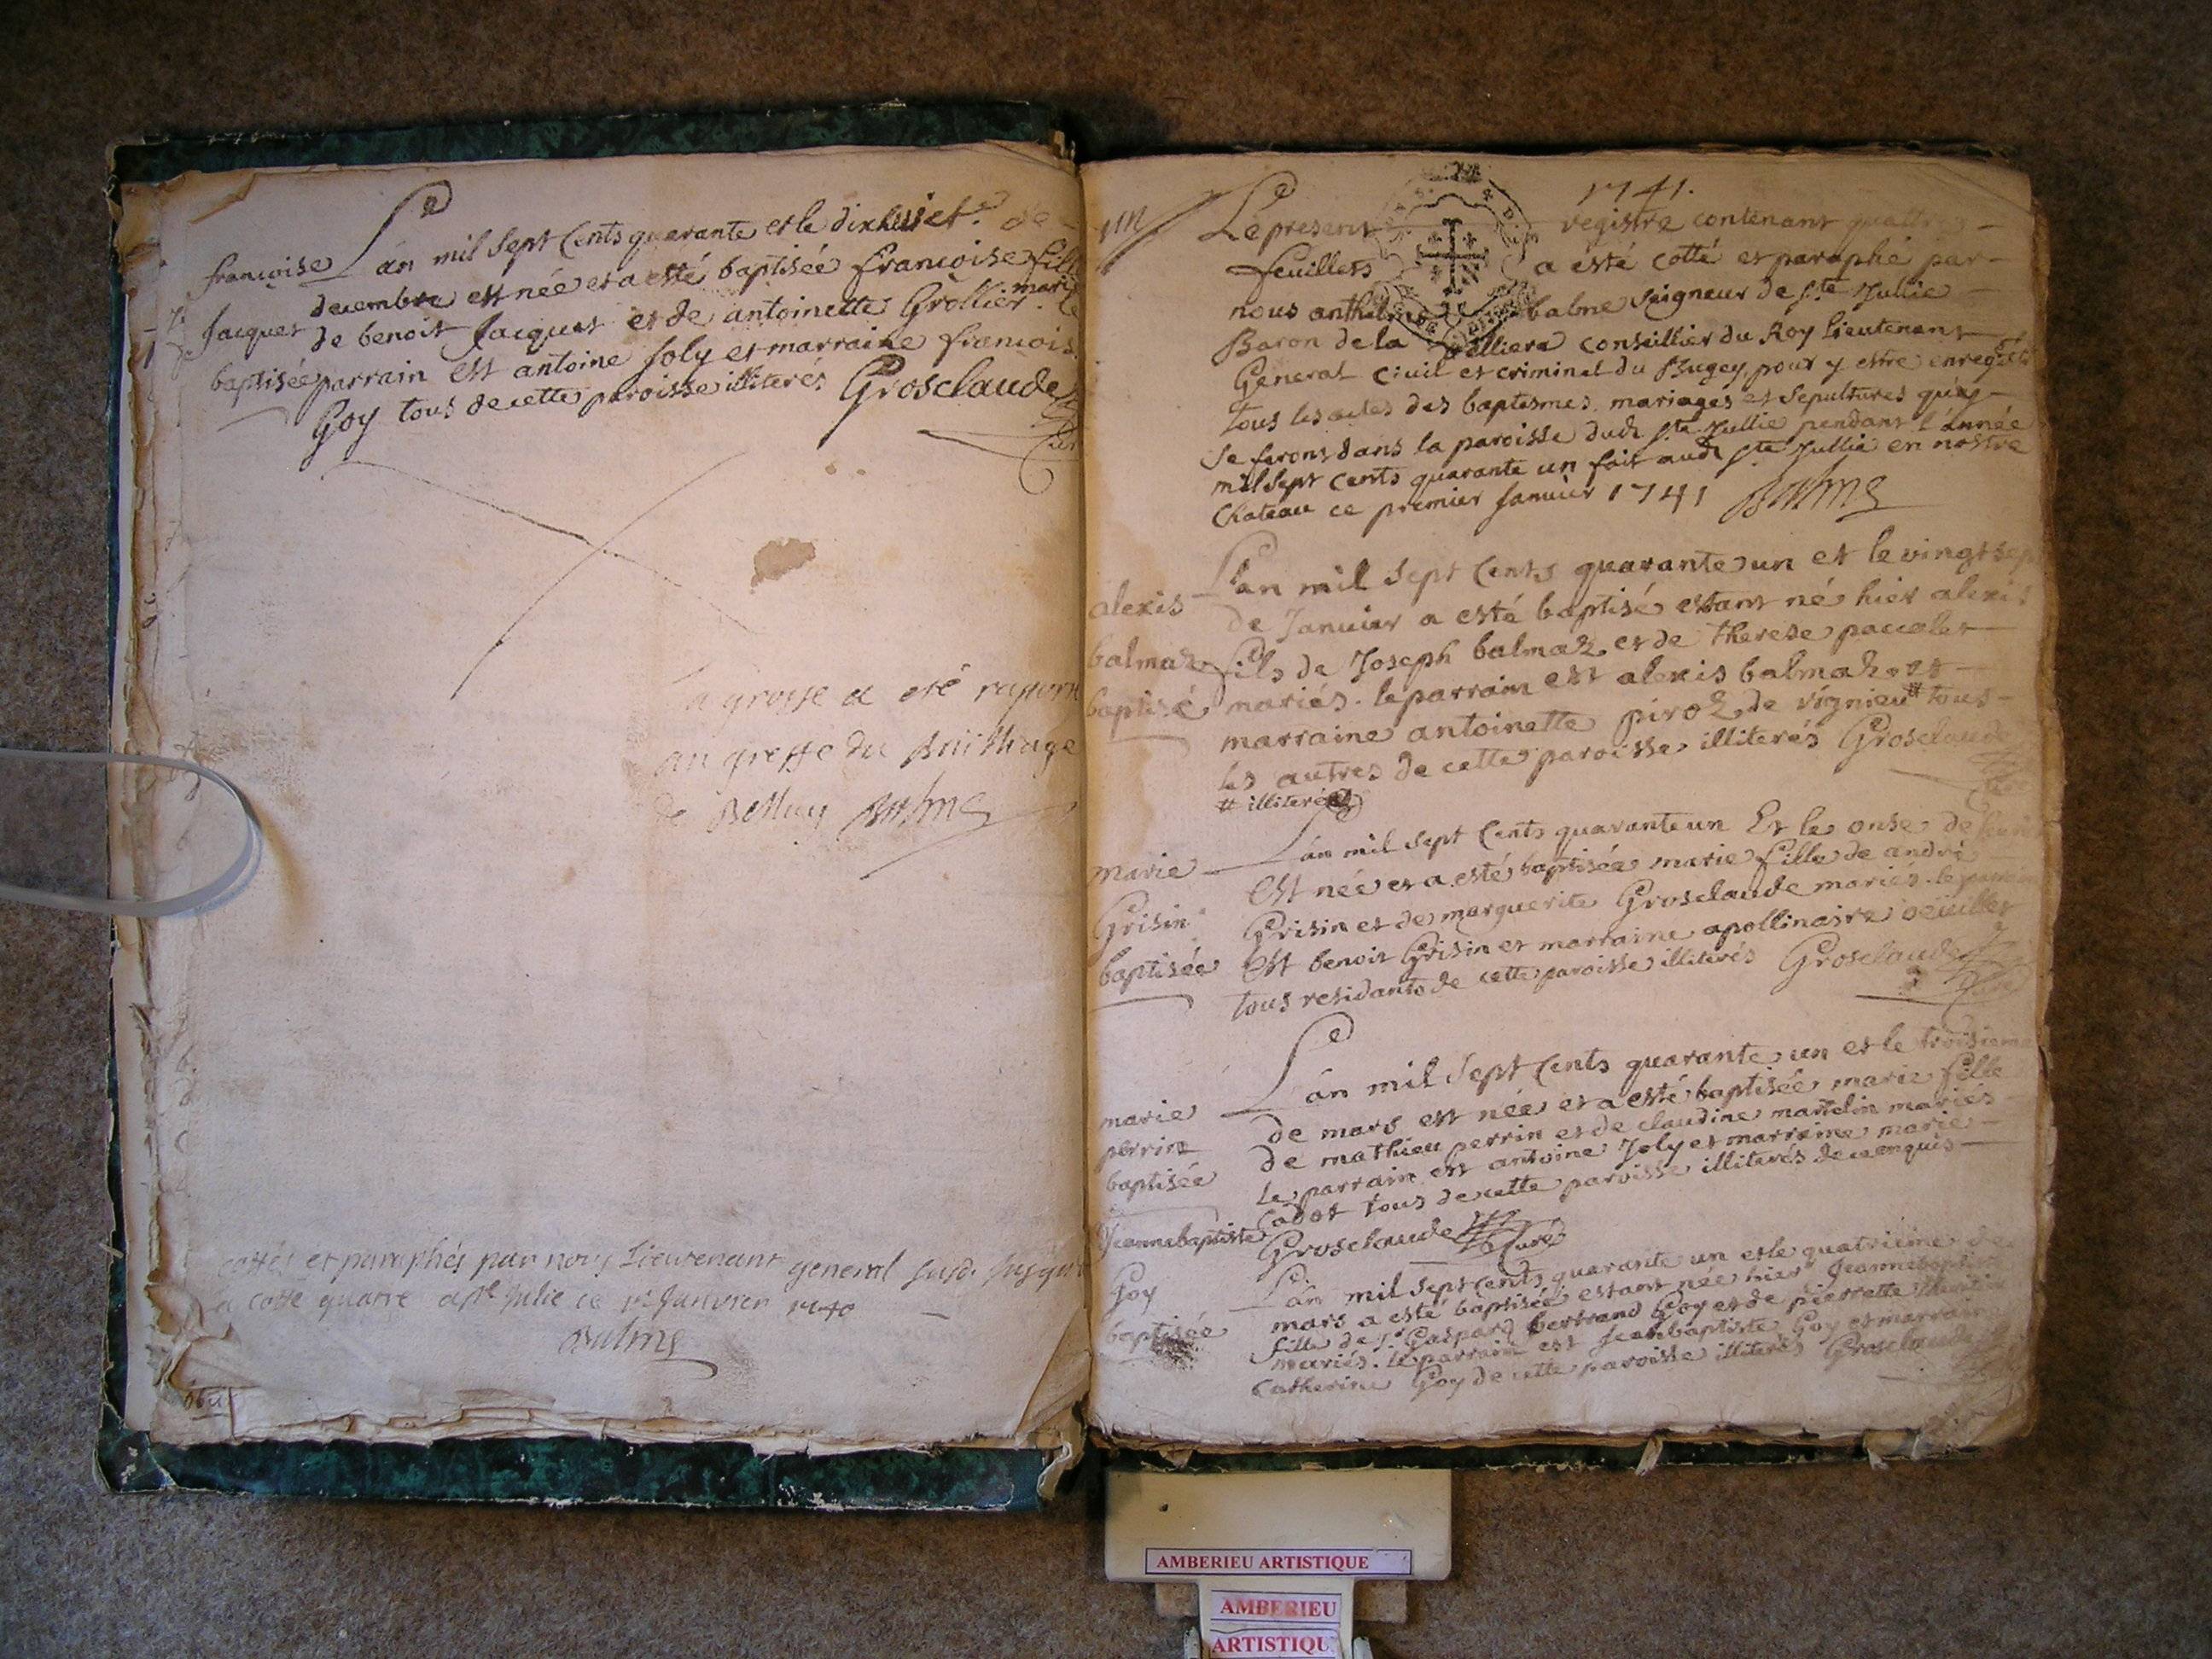 françoise
Jacquet
baptisée
L'an mil sept Cents quarante et le dixhuict.e de
decembre est née et a esté baptisée françoise fille
de benoit Jacquet et de antoinette Grollier mariés
parrain est antoine Joly et marraine françoise
Goy tous de cette paroisse illiterés Grosclaude
Curé
la grosse a eté raporté
au greffe du Bailliage
de Belley Balme
cottés et paraphés par nous Lieutenant general susd. jusqu
a cotte quatre a Ste Julie ce 1er Janvier 1740
Balme
1741.
Le present registre contenant quattre
feuillets a esté cotté et paraphé par
nous anthelme balme Seigneur de Ste Jullie
Baron de la velliere Conseillier du Roy Lieutenant
General Civil et criminel du Bugey, pour y estre enregistré
tous les actes des baptesmes, mariages et Sepultures qui
se feront dans la paroisse dud Ste Jullie pendant l'année
mil Sept Cents quarante un fait aud Ste Jullie en nostre
Chateau ce premier Janvier 1741 Balme
alexis
balmaz
baptisé
L'an mil Sept Cents quarante un et le vingt sep
de Janvier a esté baptisé estant né hier alexis
fils de Joseph balmaz et de therese paccalet
mariés. le parrain est alexis balmaz et
marraine antoinette piroz de vignieu # tous
les autres de cette paroisse illiterés Grosclaude
# illiterés
marie
Grisin
baptisée
L'an mil Sept Cents quarante un Et le onse de
Est née et a esté baptisée marie fille de andré
Grisin et de marguerite Grosclaude mariés. le parrain
est benoit Grisin et marraine apollinaire oeüillet
tous residants de cette paroisse illiterés Grosclaude
marie
perrin
baptisée
L'an mil Sept Cents quarante un et le troisieme
de mars est née et a esté baptisée marie fille
de mathieu perrin et de claudine martelin mariés
le parrain est antoine Joly et marraine marie
Cabot tous de cette paroisse illiterés de ce enquis
Grosclaude Curé
Jeannebaptiste
Goy
baptisée
L'an mil Sept Cents quarante un et le quatriéme de
mars a esté baptisée estant née hier Jeannebaptiste
fille de Sr Gaspard bertrand Goy et de pierrette
mariés. le parrain est Jeanbaptiste Goy et marraine
Catherine Goy de cette paroisse illiterés Grosclaude
AMBERIEU ARTISTIQUE
AMBERIEU
ARTISTIQU